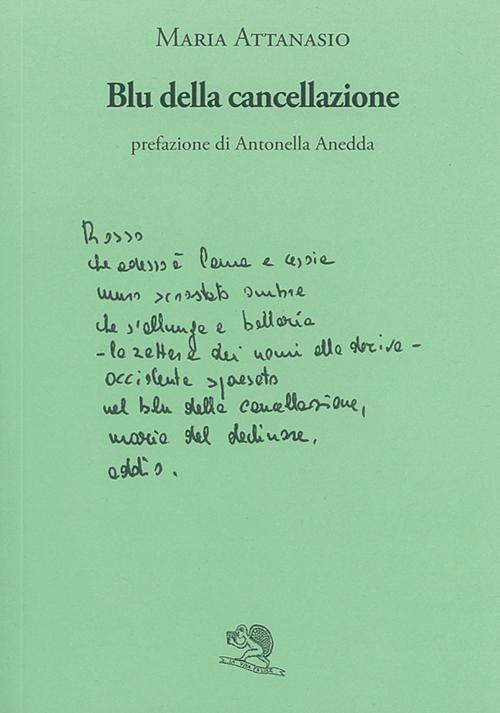 MARIA ATTANASIO
Blu della cancellazione
prefazione di Antonella Anedda
Rosso
che adesso è lama e
muro scrostato ombra
che s'allunga e
- la zattera dei nomi alla deriva -
occidente spaesato
nel blu della cancellazione,
del declinare,
addio.
LA VITA FELICE